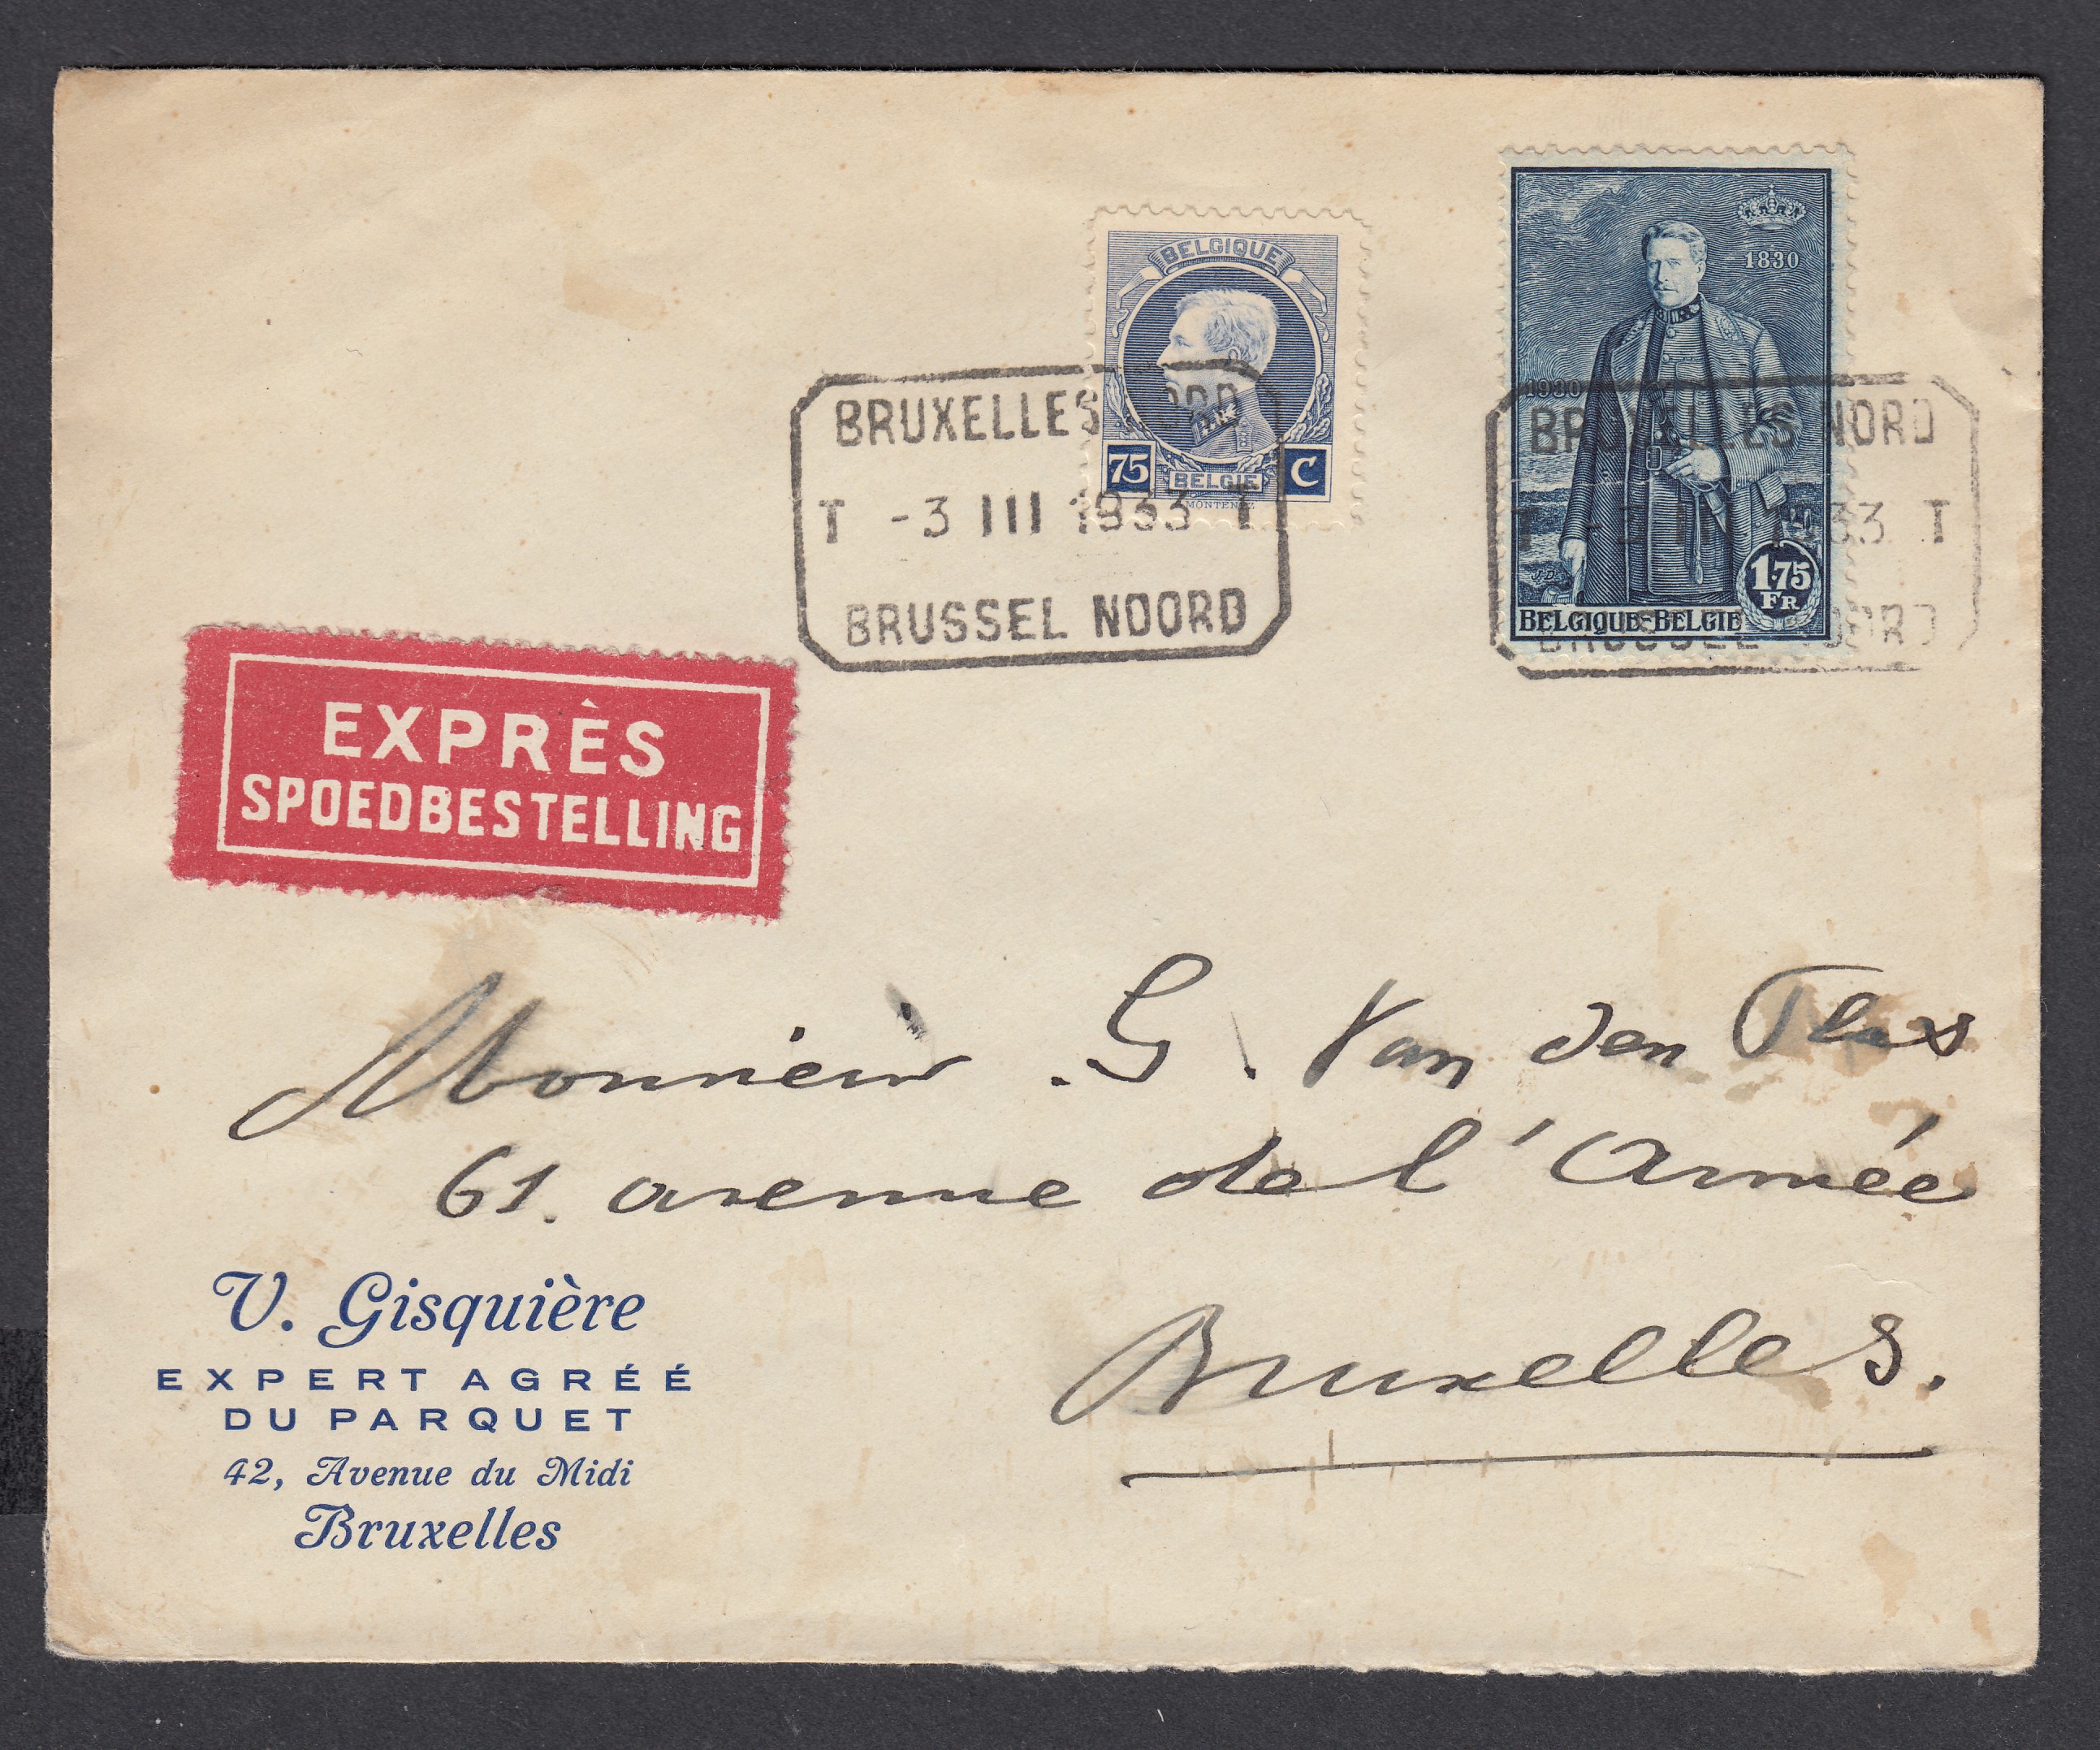 BELGIQUE
75 C
BELGIË
MONTENEZ
1830
1930
J.D.
1.75
FR
BELGIQUE-BELGIE
BRUXELLES NORD
T -3 III 1933 T
BRUSSEL NOORD
BRUXELLES NORD
T -3 III 1933 T
BRUSSEL NOORD
EXPRÈS
SPOEDBESTELLING
Monsieur . G . Van den
61. avenue de l'Armée
Bruxelles.
V. Gisquière
EXPERT AGRÉÉ
DU PARQUET
42, Avenue du Midi
Bruxelles